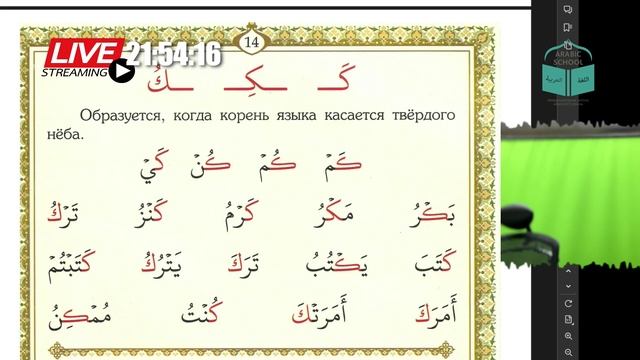 14
LIVE 21:54:16
STREAMING
ARABIC
SCHOOL
اللغة العربية
كَـ ـكِـ ـكُ
Образуется, когда корень языка касается твёрдого
нёба.
كَمْ كُمْ كُنْ كَيْ
بَكْرُ مَكْرُ كَرْمُ كَنْزُ تَرْكُ
كَتَبَ يَكْتُبُ تَرَكَ يَتْرُكُ كَتَبْتُمْ
أَمَرَكَ أَمَرَتْكَ كُنْتُ مُمْكِنُ